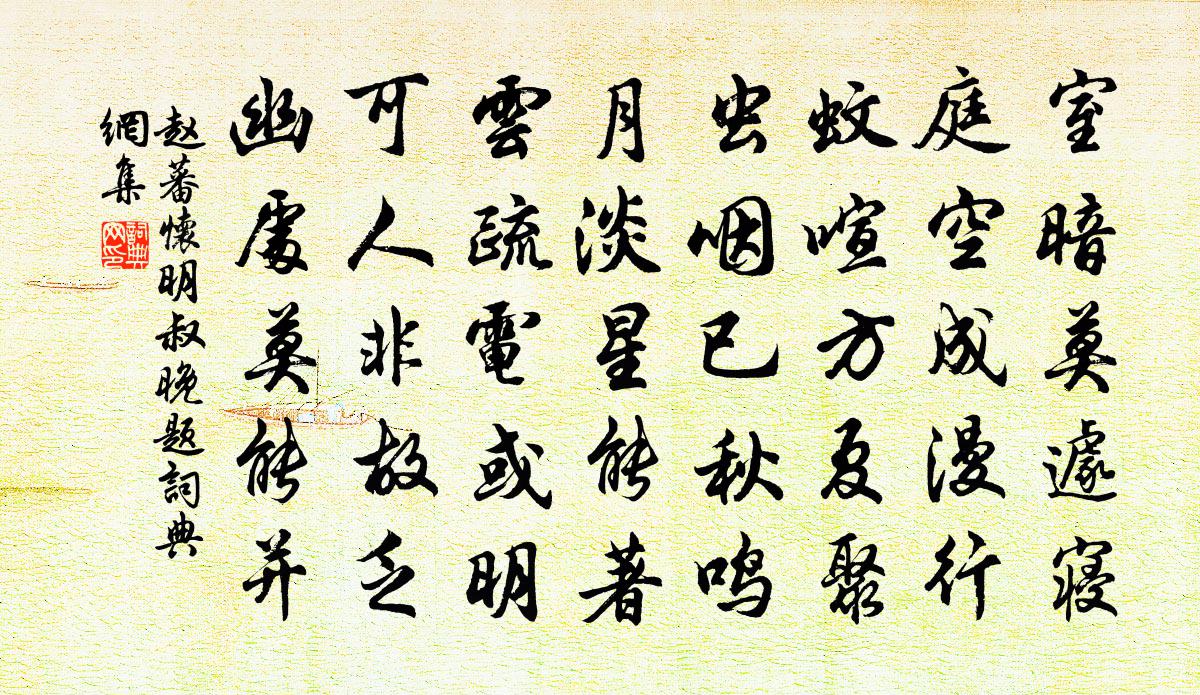 室暗莫遽寝
庭空成漫行
蚊喧方夏聚
虫咽已秋鸣
月淡星能著
雲疏電或明
可人非故乏
幽處莫能并
赵蕃懷明叔晚题詞典
網集
詞典
网印